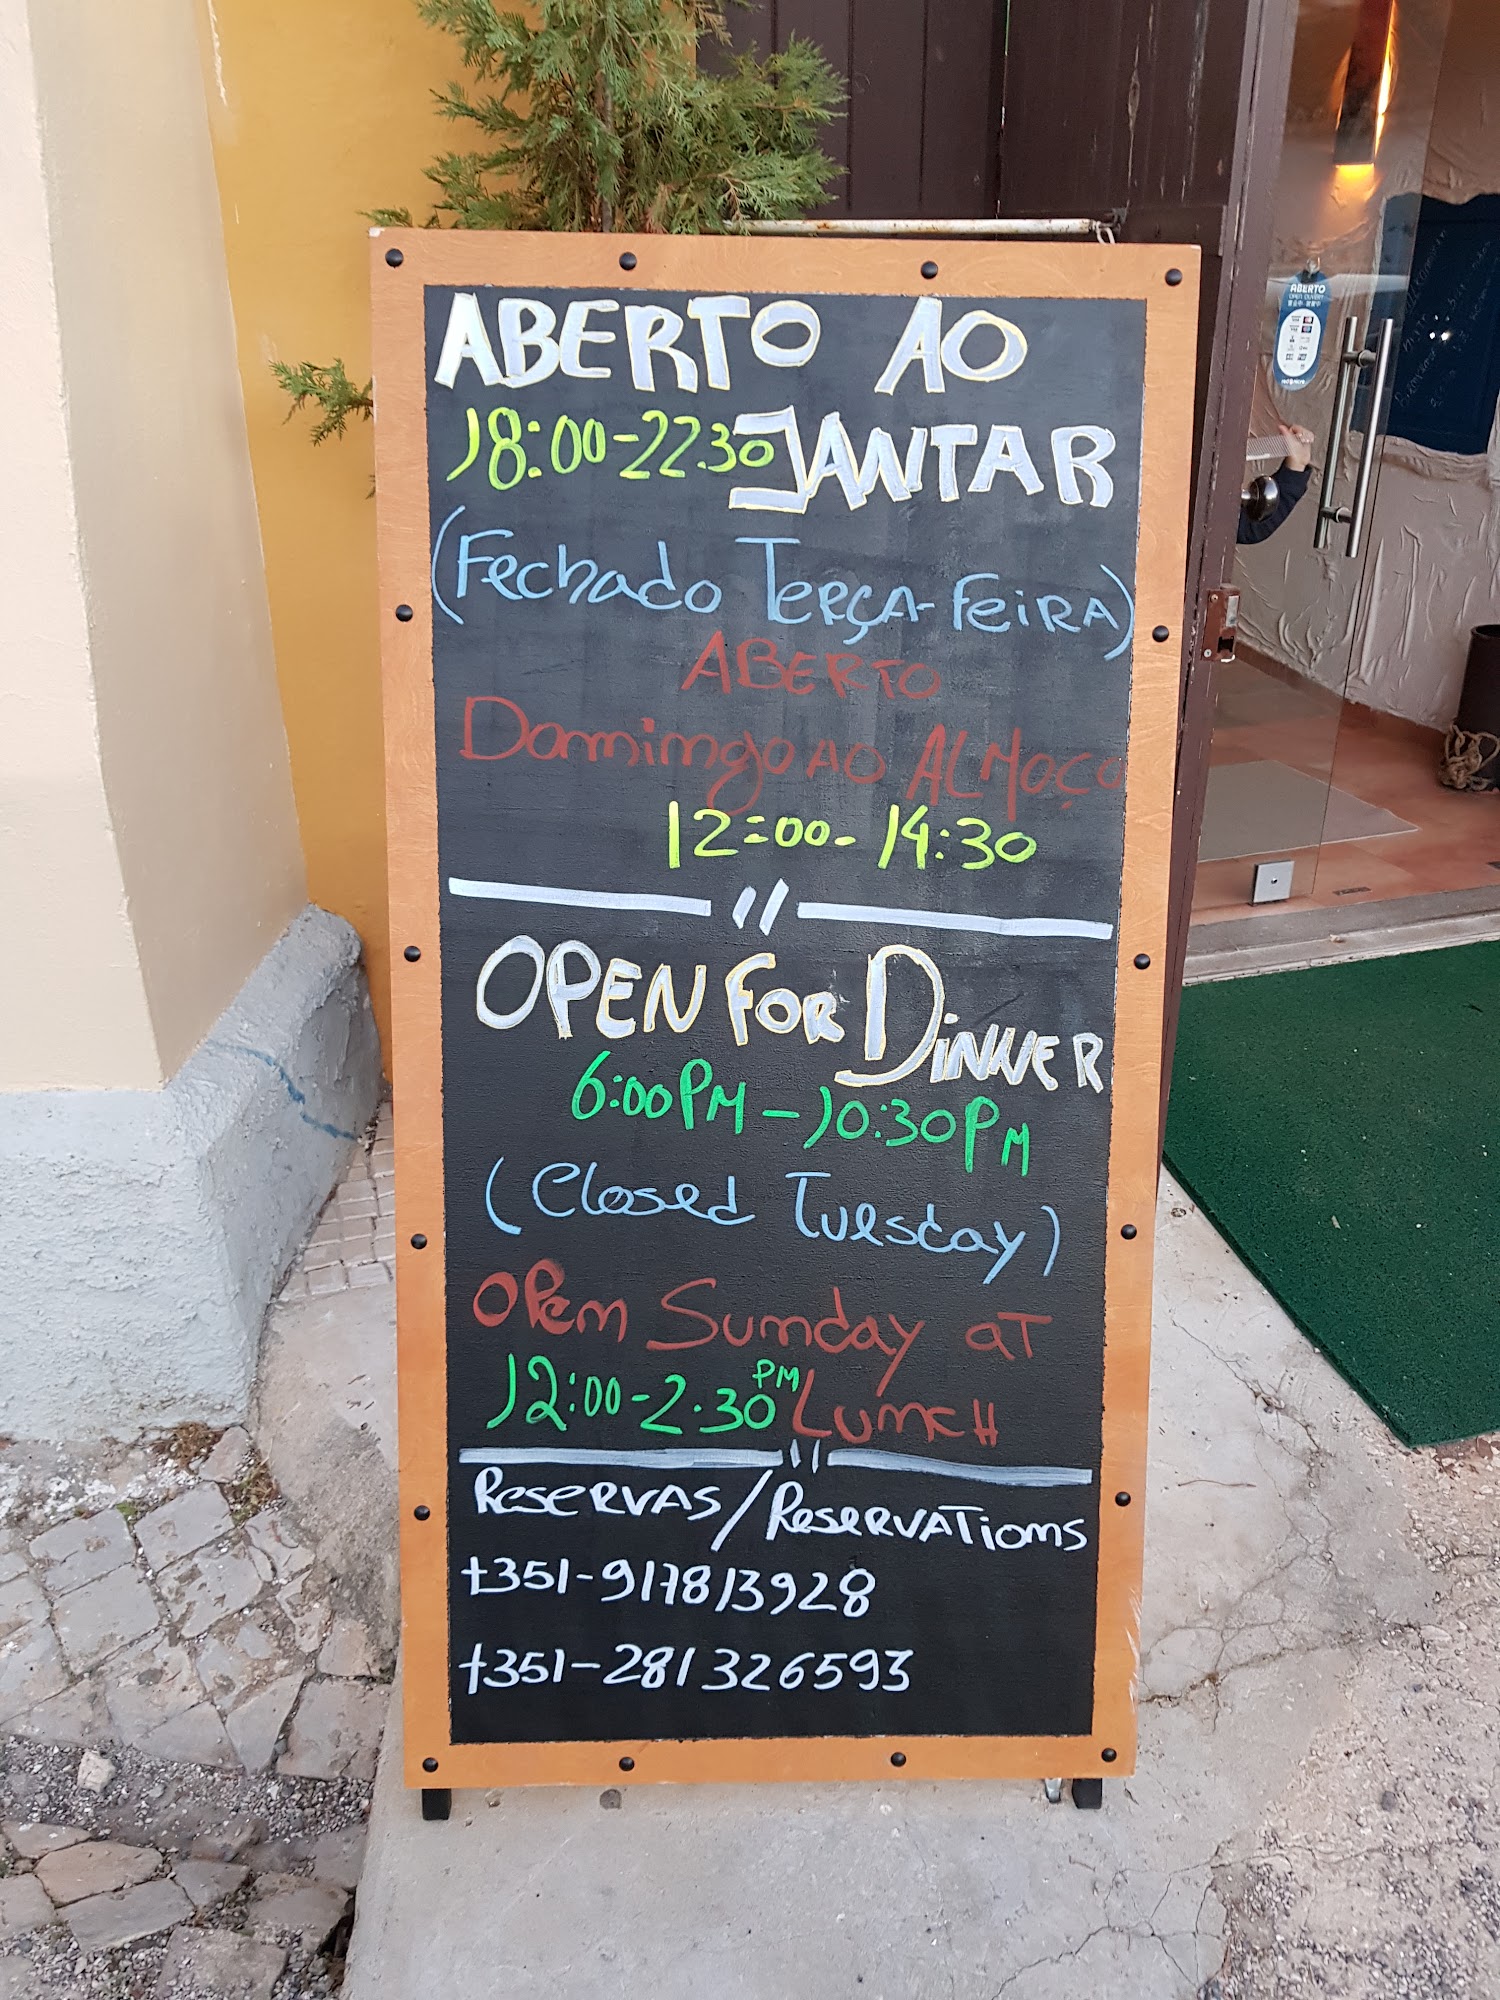 ABERTO AO
18:00-22.30 JANTAR
(Fechado TERÇA-FEIRA)
ABERTO
Domingo AO ALMOÇO
12:00-14:30
OPEN FOR DINNER
6:00PM-10:30PM
(Closed Tuesday)
OPEN Sunday aT
12:00-2.30PM LUNCH
ReseRVAS/ReseRVATions
+351-917813928
+351-281326593
ABERTO